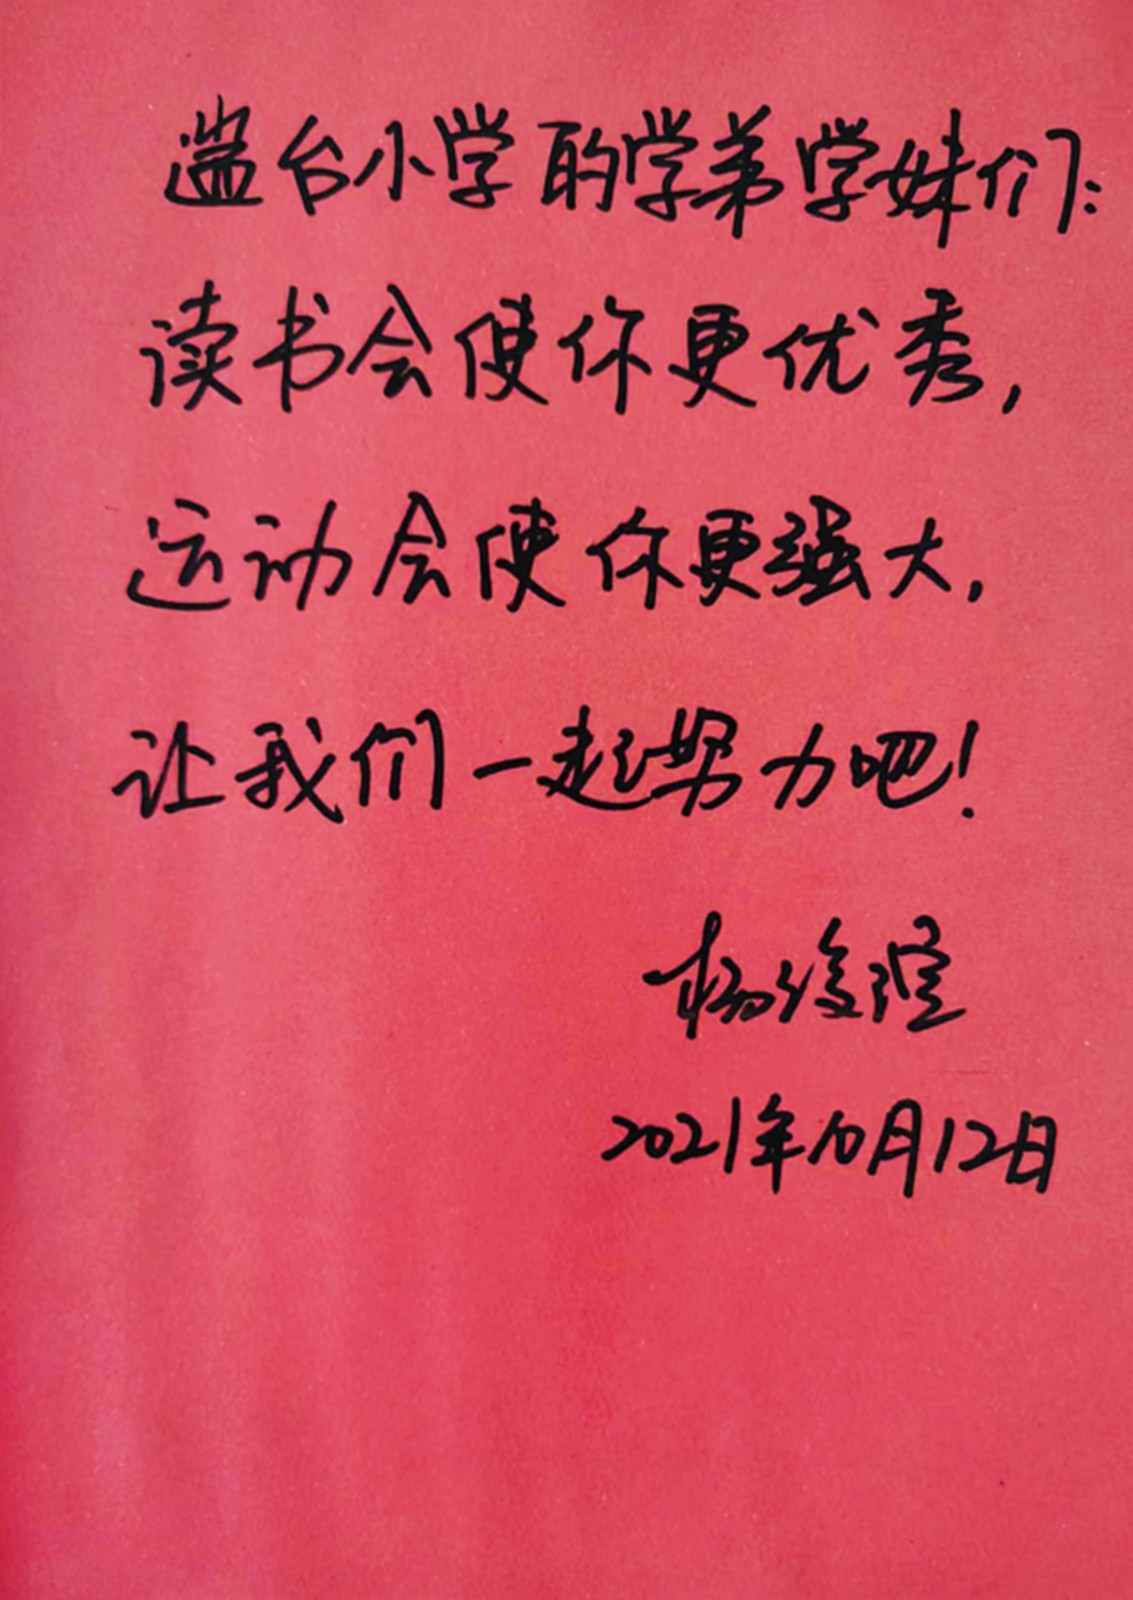 遄台小学的学弟学妹们:
读书会使你更优秀,
运动会使你更强大,
让我们一起努力吧!
杨浚瑄
2021年10月12日